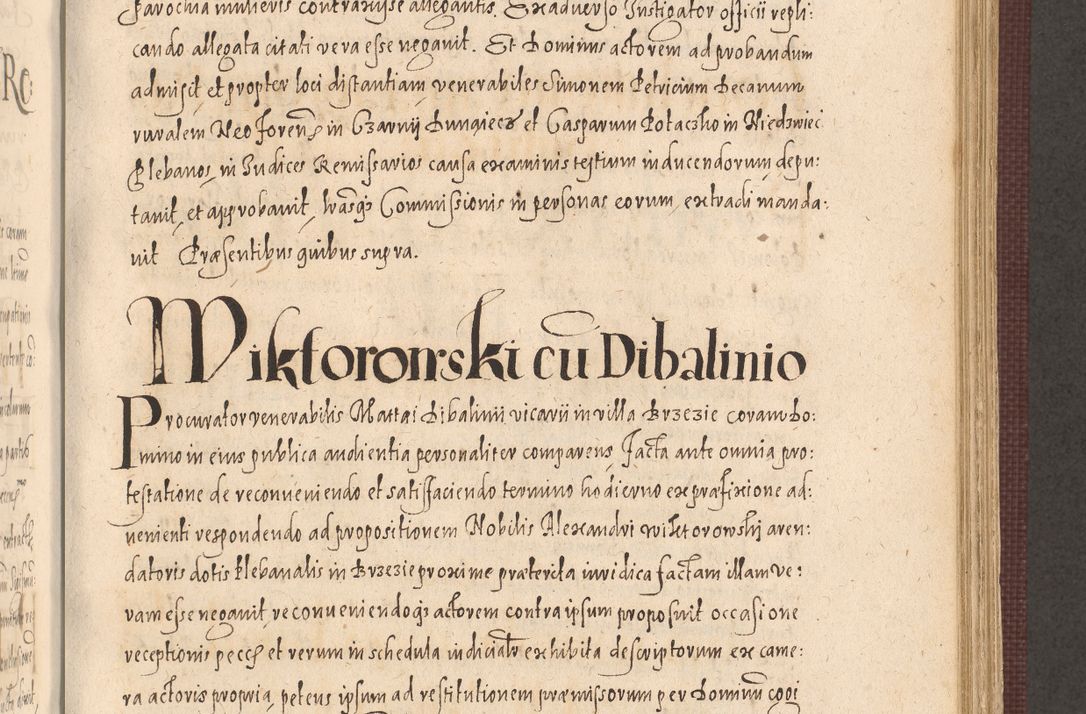 parochia mulieris contraxisse allegantis. Ex aduerso Instigator officii repli:
cando allegata citati vera esse negauit. Et Dominus actorem ad probandum
admisit, et propter loci distantiam venerabiles Simonem Petricium Decanum
ruralem Neo forens in Czarnij Dunaiecz et Gasparum Potaczko in Niedzwiec
Plebanos, in Iudices Remissarios causa examinis testium inducendorum depu:
tauit, et approbauit, Commissionis in personas eorum, extradi manda:
uit Præsentibus quibus supra.
Wiktorowski cū Dibalinio
Procurator venerabilis Mattæi Dibalinii vicarii in villa Brzezie coram Do:
mino in eius publica audientia personaliter comparens, facta ante omnia pro:
testatione de reconueniendo et satisfaciendo termino hodierno ex præfixione ad:
uenienti respondendo ad propositionem Nobilis Alexandri Wiktorowskij aren:
datoris dotis Plebanalis in Brzezie proxime præterita iuridica factam illam ve:
ram esse negauit, reconueniendoq3 actorem contra ipsum proposuit occasione
receptionis et rerum in schedula iudicialr exhibita descriptorum ex came:
ra actoris propria, petens ipsum ad restitutionem præmissorum per Dominū cogi